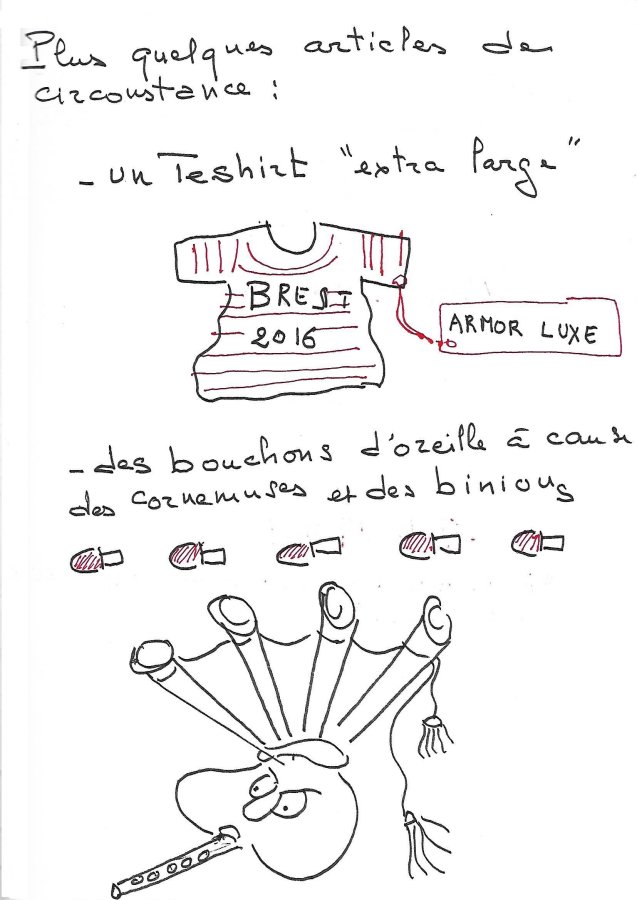 Plus quelques articles de
circonstance :
- un Teshirt "extra large"
BREST
2016
ARMOR LUXE
- des bouchons d'oreille à cause
des cornemuses et des binious